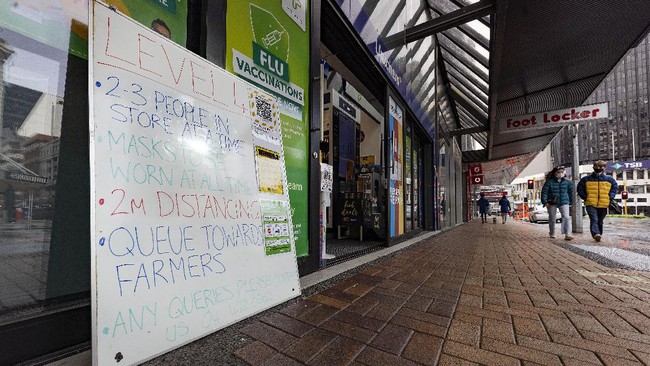 LEVEL
2-3 PEOPLE IN
STORE AT A TIME
MASKS TO BE
WORN AT ALL TIME
2m DISTANCING
QUEUE TOWARDS
FARMERS
ANY QUERIES PLEASE
US
FLU
VACCINATIONS
Foot Locker
TSB